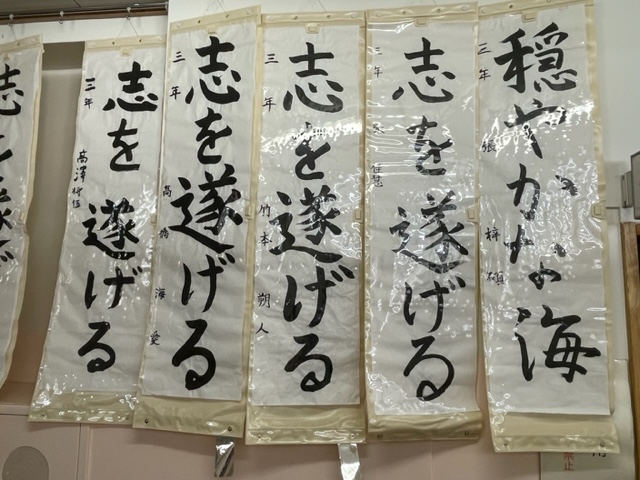 穏やかな海
三年 張 梓碩
志を遂げる
三年
志を遂げる
三年 竹本 朔人
志を遂げる
三年 高橋 海愛
志を遂げる
三年 高澤
志を遂げ